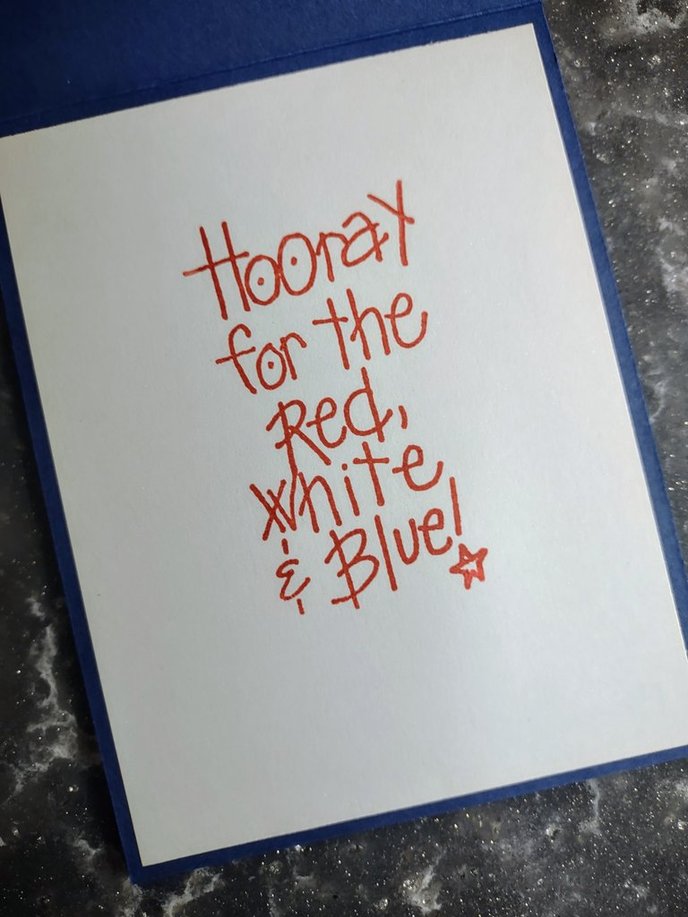 Hooray
for the
Red,
White
& Blue!